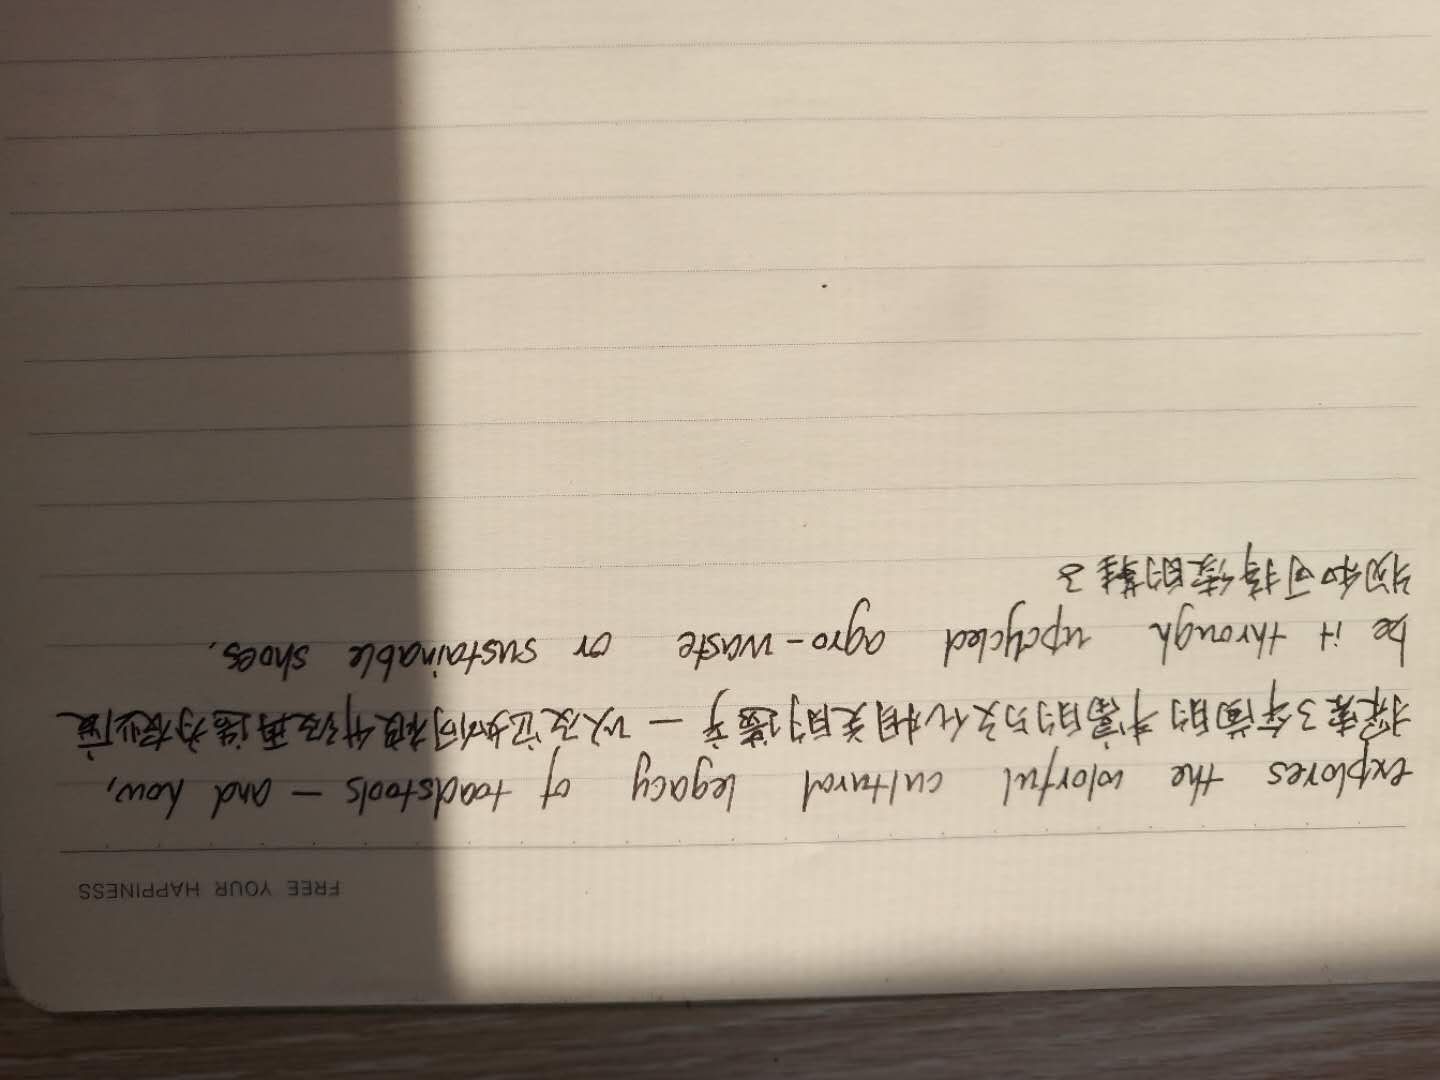 FREE YOUR HAPPINESS
explores the colorful cultural legacy of toadstools — and how,
探索了伞菌的丰富的与文化相关的遗产 — 以及它如何被升级再造为农业废
be it through upcycled agro-waste or sustainable shoes.
物和可持续的鞋子